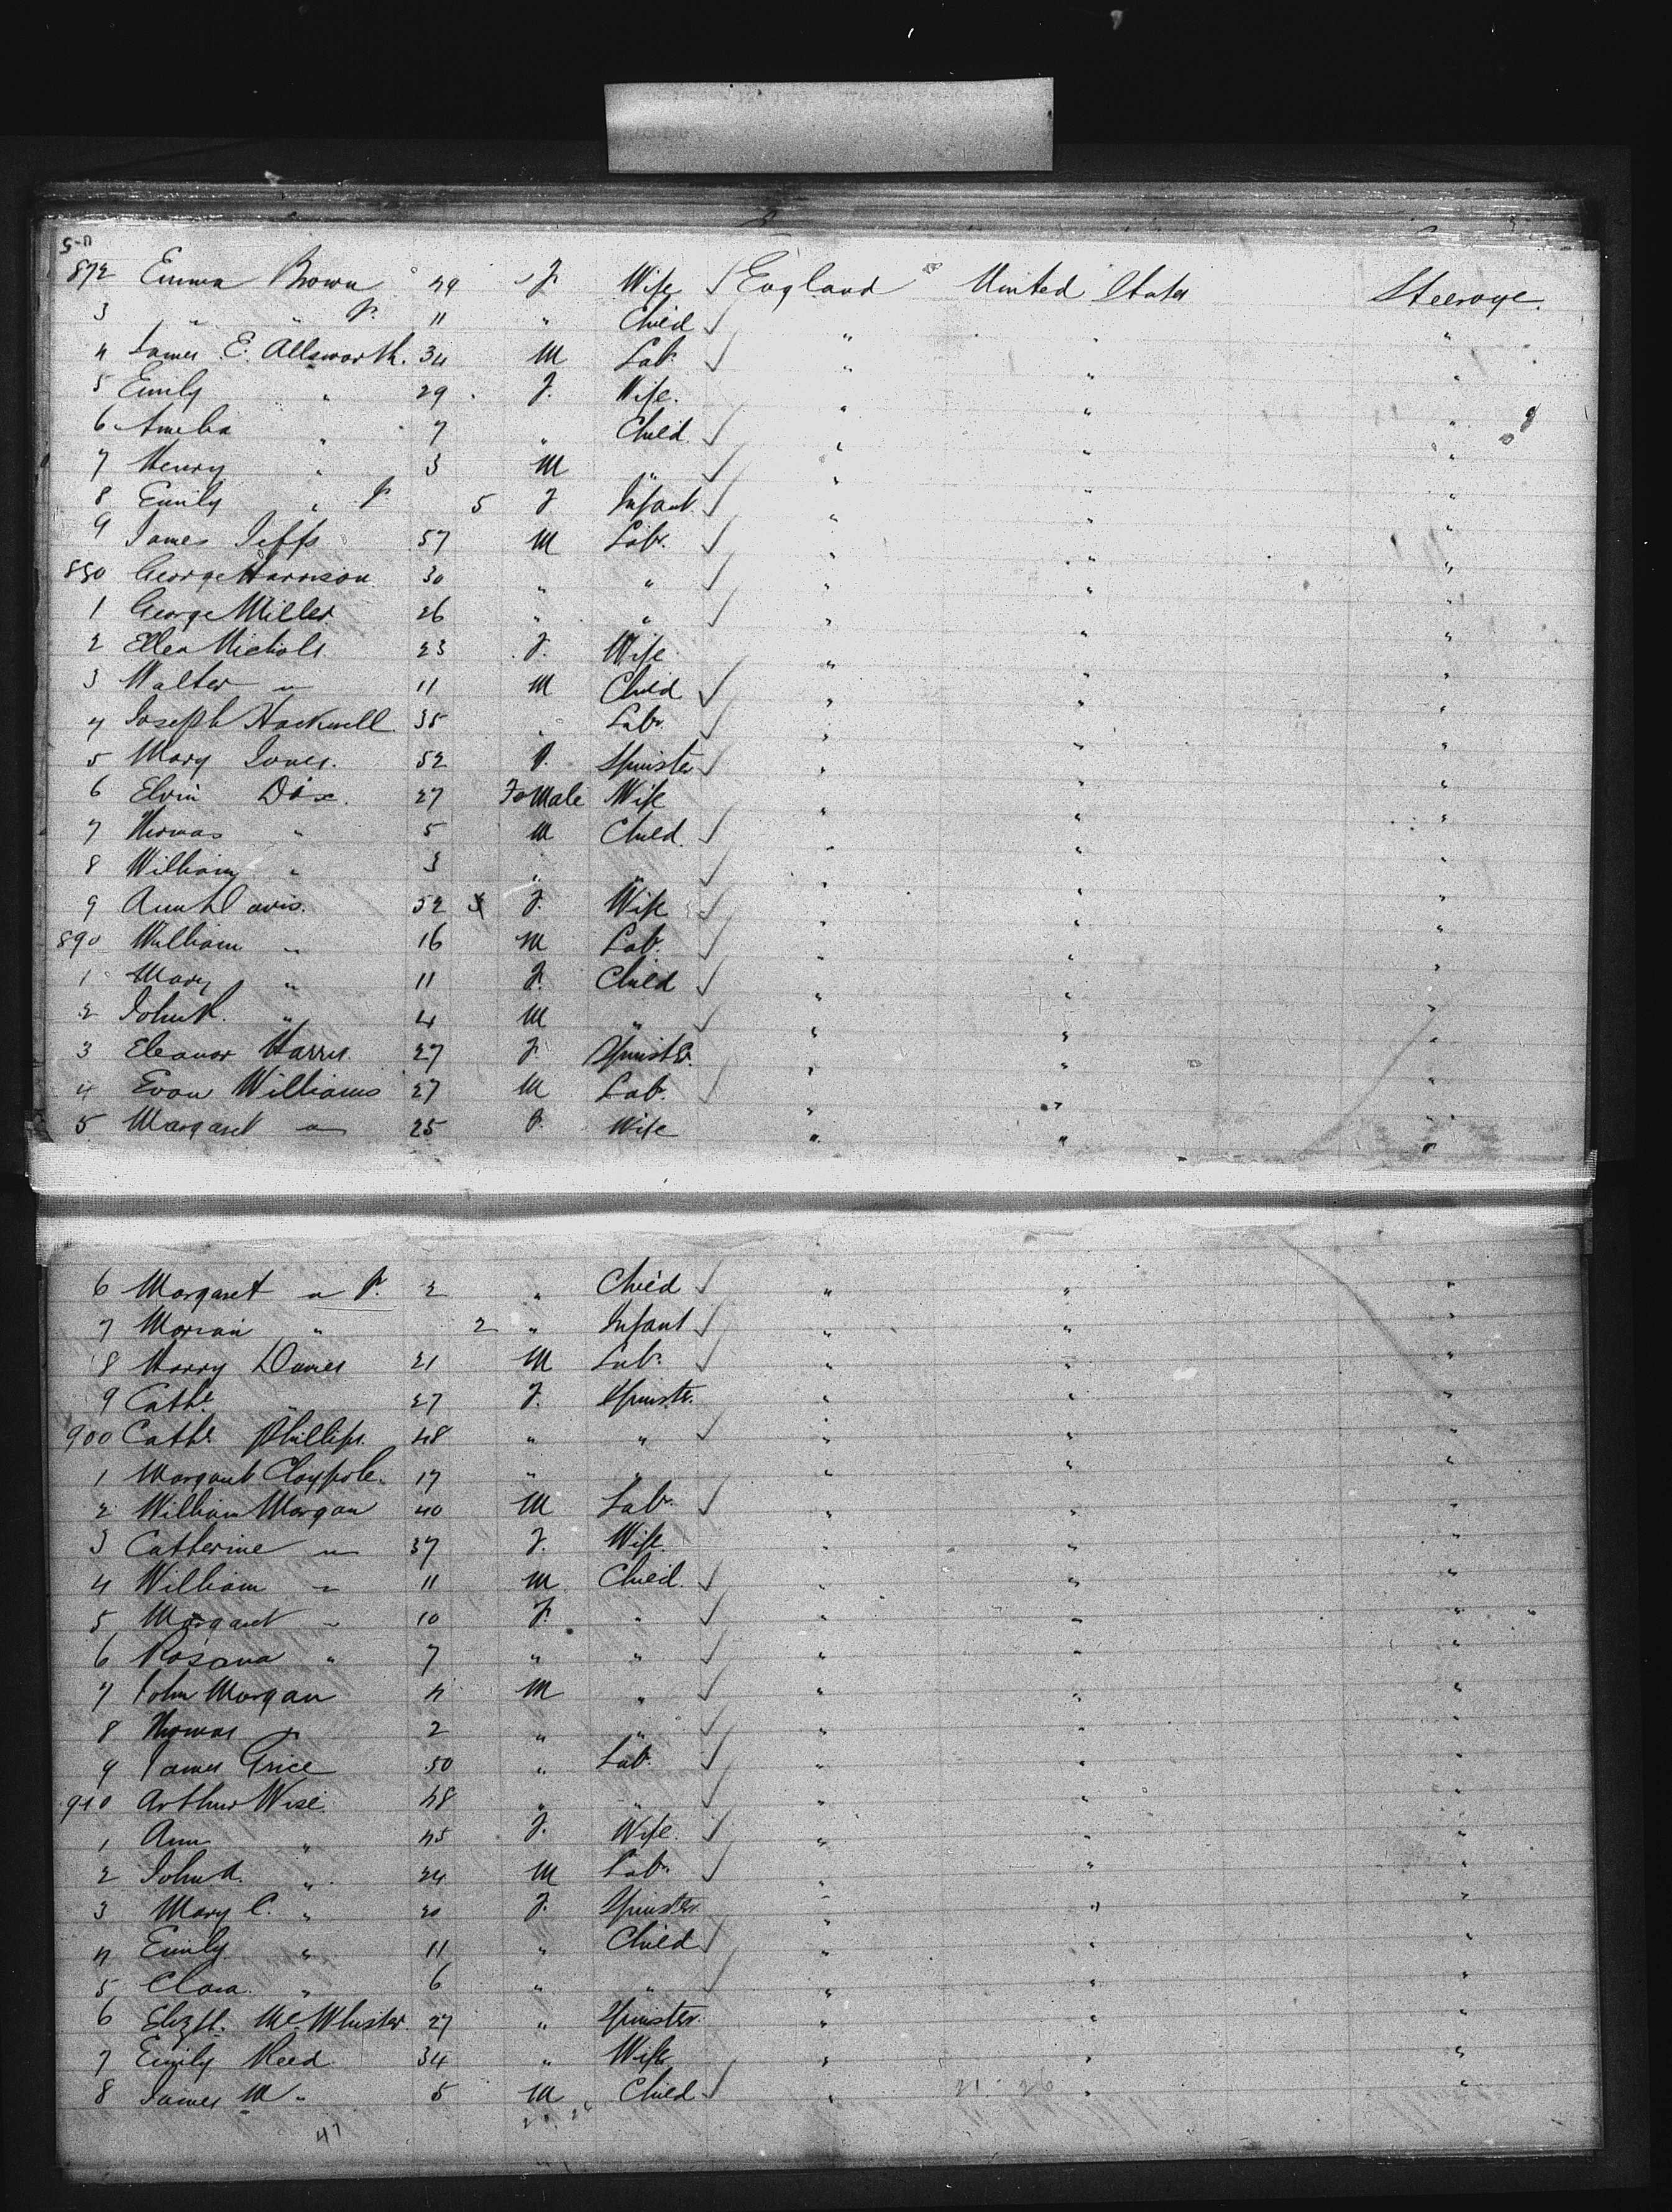 872 Emma Brown 49 F. Wife England United States Steerage.
3 " " Jr. 11 " Child " " "
4 James E. Allsworth. 34 M Labr. " " "
5 Emily " 29 F. Wife. " " "
6 Amelia " 7 " Child " " "
7 Henry " 3 M " " " "
8 Emily " Jr 5 F Infant " " "
9 James Jeffs 57 M Labr. " " "
880 George Harrison 30 " " " " "
1 George Miller 26 " " " " "
2 Ellen Nichols. 23 F. Wife " " "
3 Walter " 11 M Child " " "
4 Joseph Hackwell 35 " Labr. " " "
5 Mary Jones. 52 F. Spinster " " "
6 Elvin Dix. 27 Female Wife " " "
7 Thomas " 5 M Child. " " "
8 William " 3 " " " " "
9 Ann Davis. 52 F. Wife " " "
890 William " 16 M Lab. " " "
1 Mary " 11 F. Child " " "
2 John " 4 M " " " "
3 Eleanor Harris. 27 F. Spinstr. " " "
4 Evan Williams 27 M Lab. " " "
5 Margaret " 25 F. Wife " " "
6 Margaret " Jr. 2 " Child " " "
7 Marian " 2 " Infant " " "
8 Harry Davies 21 M Lab. " " "
9 Cathe. " 27 F. Spinstr. " " "
900 Cathe. Phillips. 48 " " " " "
1 Margaret Claypole. 17 " " " " "
2 William Morgan 40 M Labr. " " "
3 Catherine " 37 F. Wife. " " "
4 William " 11 M. Child. " " "
5 Margaret " 10 F. " " " "
6 Rosana " 7 " " " " "
7 John Morgan 4 M " " " "
8 Thomas " 2 " " " " "
9 James Price 50 " Lab. " " "
910 Arthur Wise. 48 " " " " "
1 Ann " 45 F. Wife. " " "
2 John A. " 24 M Labr. " " "
3 Mary C. " 20 F. Spinster. " " "
4 Emily " 11 " Child " " "
5 Clara. " 6 " " " " "
6 Elizth. McWhister. 27 " Spinster. " " "
7 Emily Reed 34 " Wife " " "
8 James M " 5 M Child " 21. 26 " "
47